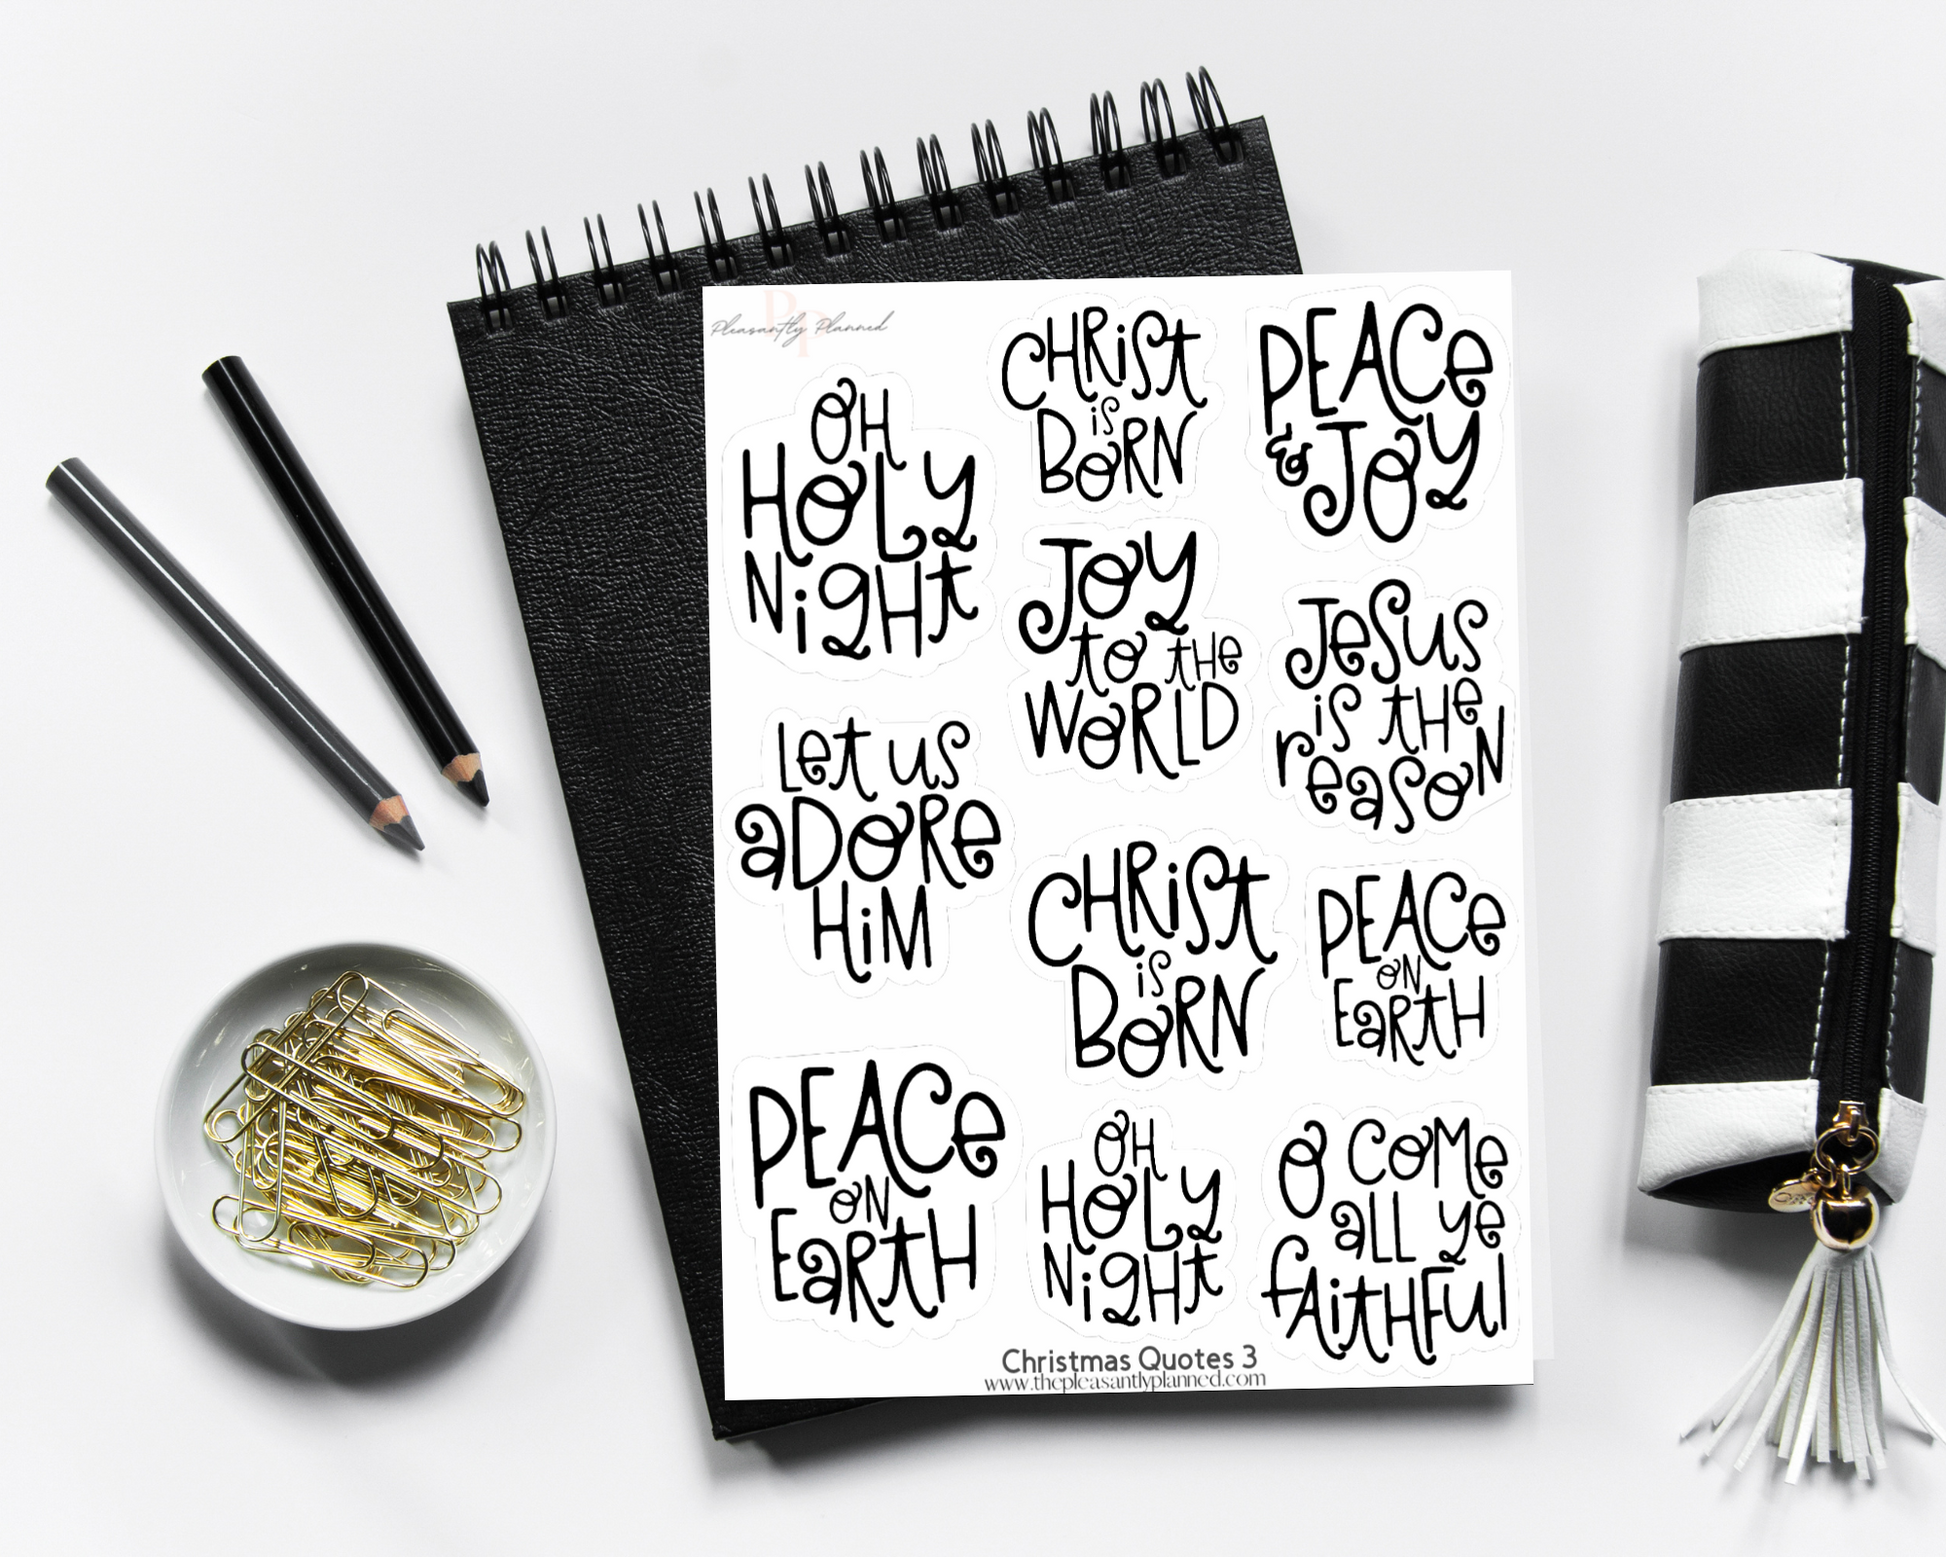 PP
Pleasantly Planned
OH
HOLY
NiGHt
CHRiSt
iS
BORN
PEACe
& JOy
JOy
to tHe
WORLD
JeSuS
iS tHe
reaSoN
Let uS
aDORe
HiM
CHRiSt
iS
BORN
PEACe
ON
EaRtH
PEACe
ON
EaRtH
OH
HOLy
NiGHt
O COMe
aLL ye
fAitHFul
Christmas Quotes 3
www.thepleasantlyplanned.com